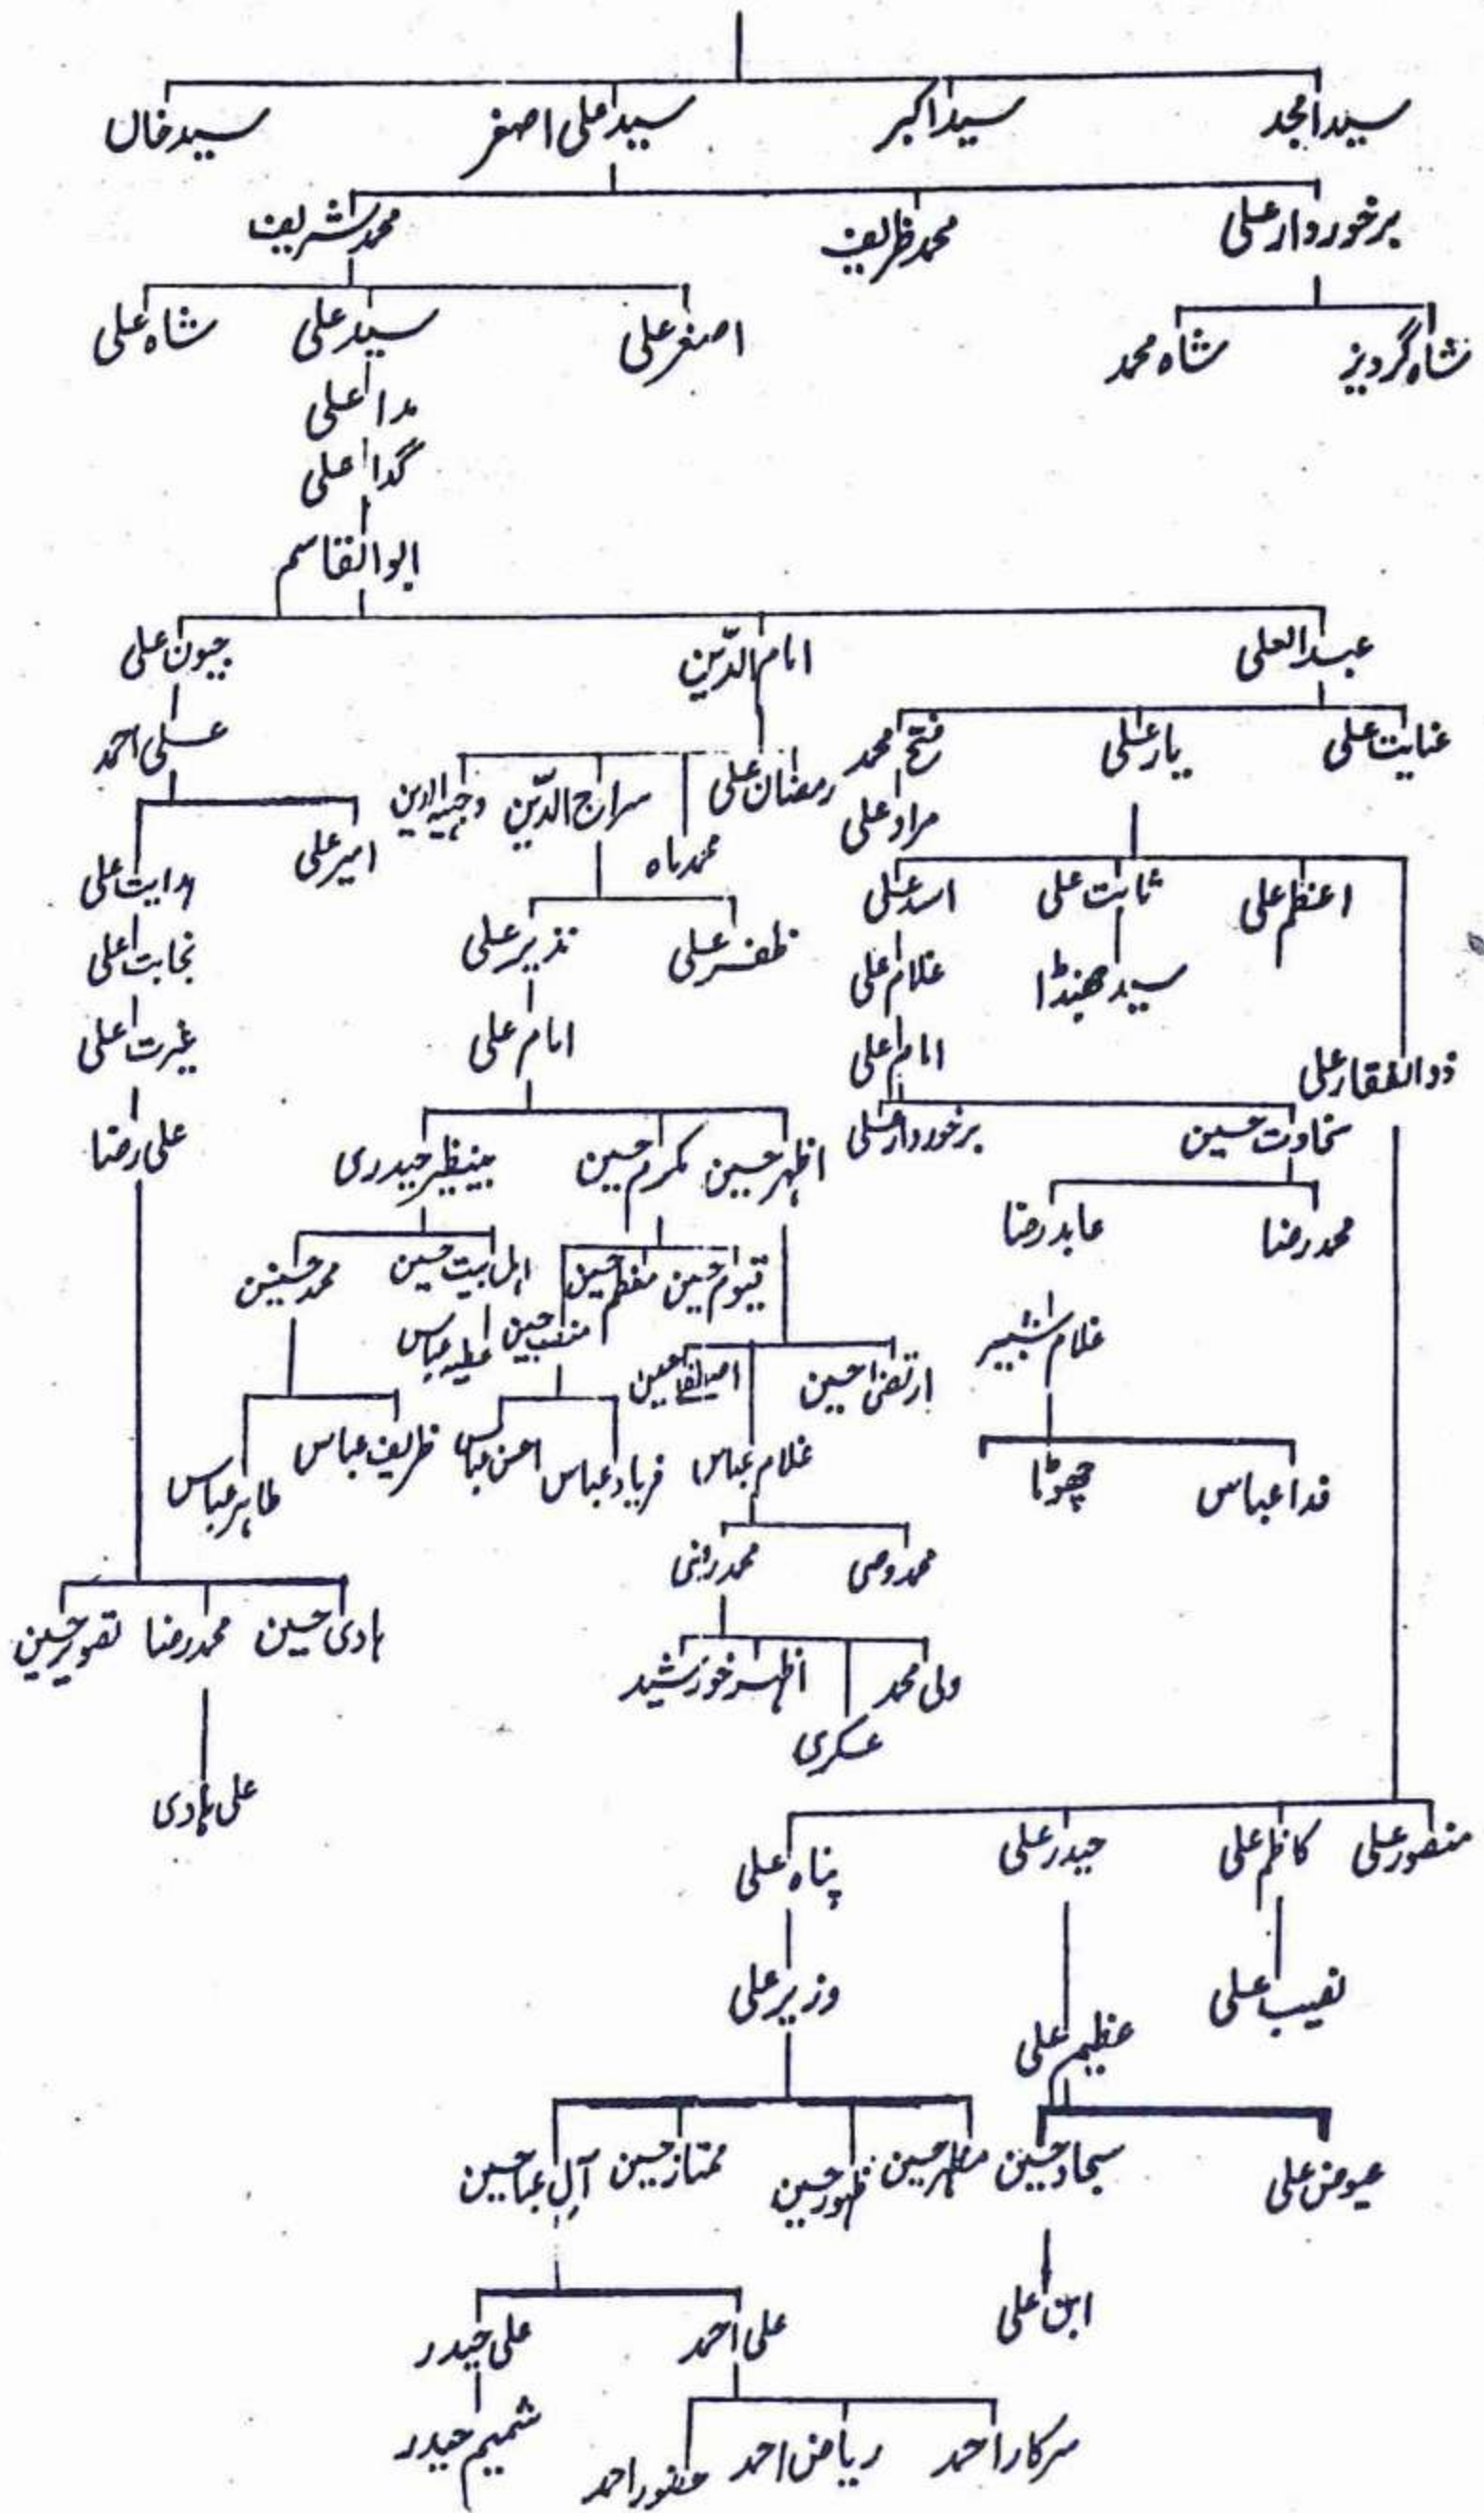 سید امجد سید اکبر سید علی اصغر سید خاں
برخوردار علی محمد ظریف محمد شریف
شاہ گردیز شاہ محمد اصغر علی سید علی شاہ علی
مدا علی
گدا علی
ابوالقاسم
عبدالعلی امام الدّین جیون علی
عنایت علی یار علی فتح محمد رمضان علی محمد ماہ سراج الدّین وجیہ الدین علی احمد
مراد علی
اعظم علی ثابت علی اسد علی ظفر علی نذیر علی امیر علی ہدایت علی
ذوالفقار علی سید جھنڈا غلام علی امام علی نجابت علی
امام علی غیرت علی
سخاوت حسین برخوردار علی اظہر حسین مکرم حسین بینظیر حیدری علی رضا
محمد رضا عابد رضا قیوم حسین معظم حسین اہل بیت حسین محمد حسنین
غلام شبیر ارتضیٰ حسین عباس
فدا عباس چھوٹا غلام عباس فریاد عباس عباس ظریف عباس طاہر عباس
محمد وصی محمد رضی
ہادی حسین محمد رضا تصویر حسین
ولی محمد عسکری اظہر خورشید
علی ہادی
منصور علی کاظم علی حیدر علی پناہ علی
نصیب علی عظیم علی وزیر علی
عیوض علی سجاد حسین مظہر حسین ظہور حسین ممتاز حسین آلِ عبا حسین
ابن علی علی احمد علی حیدر
سرکار احمد ریاض احمد احمد شمیم حیدر